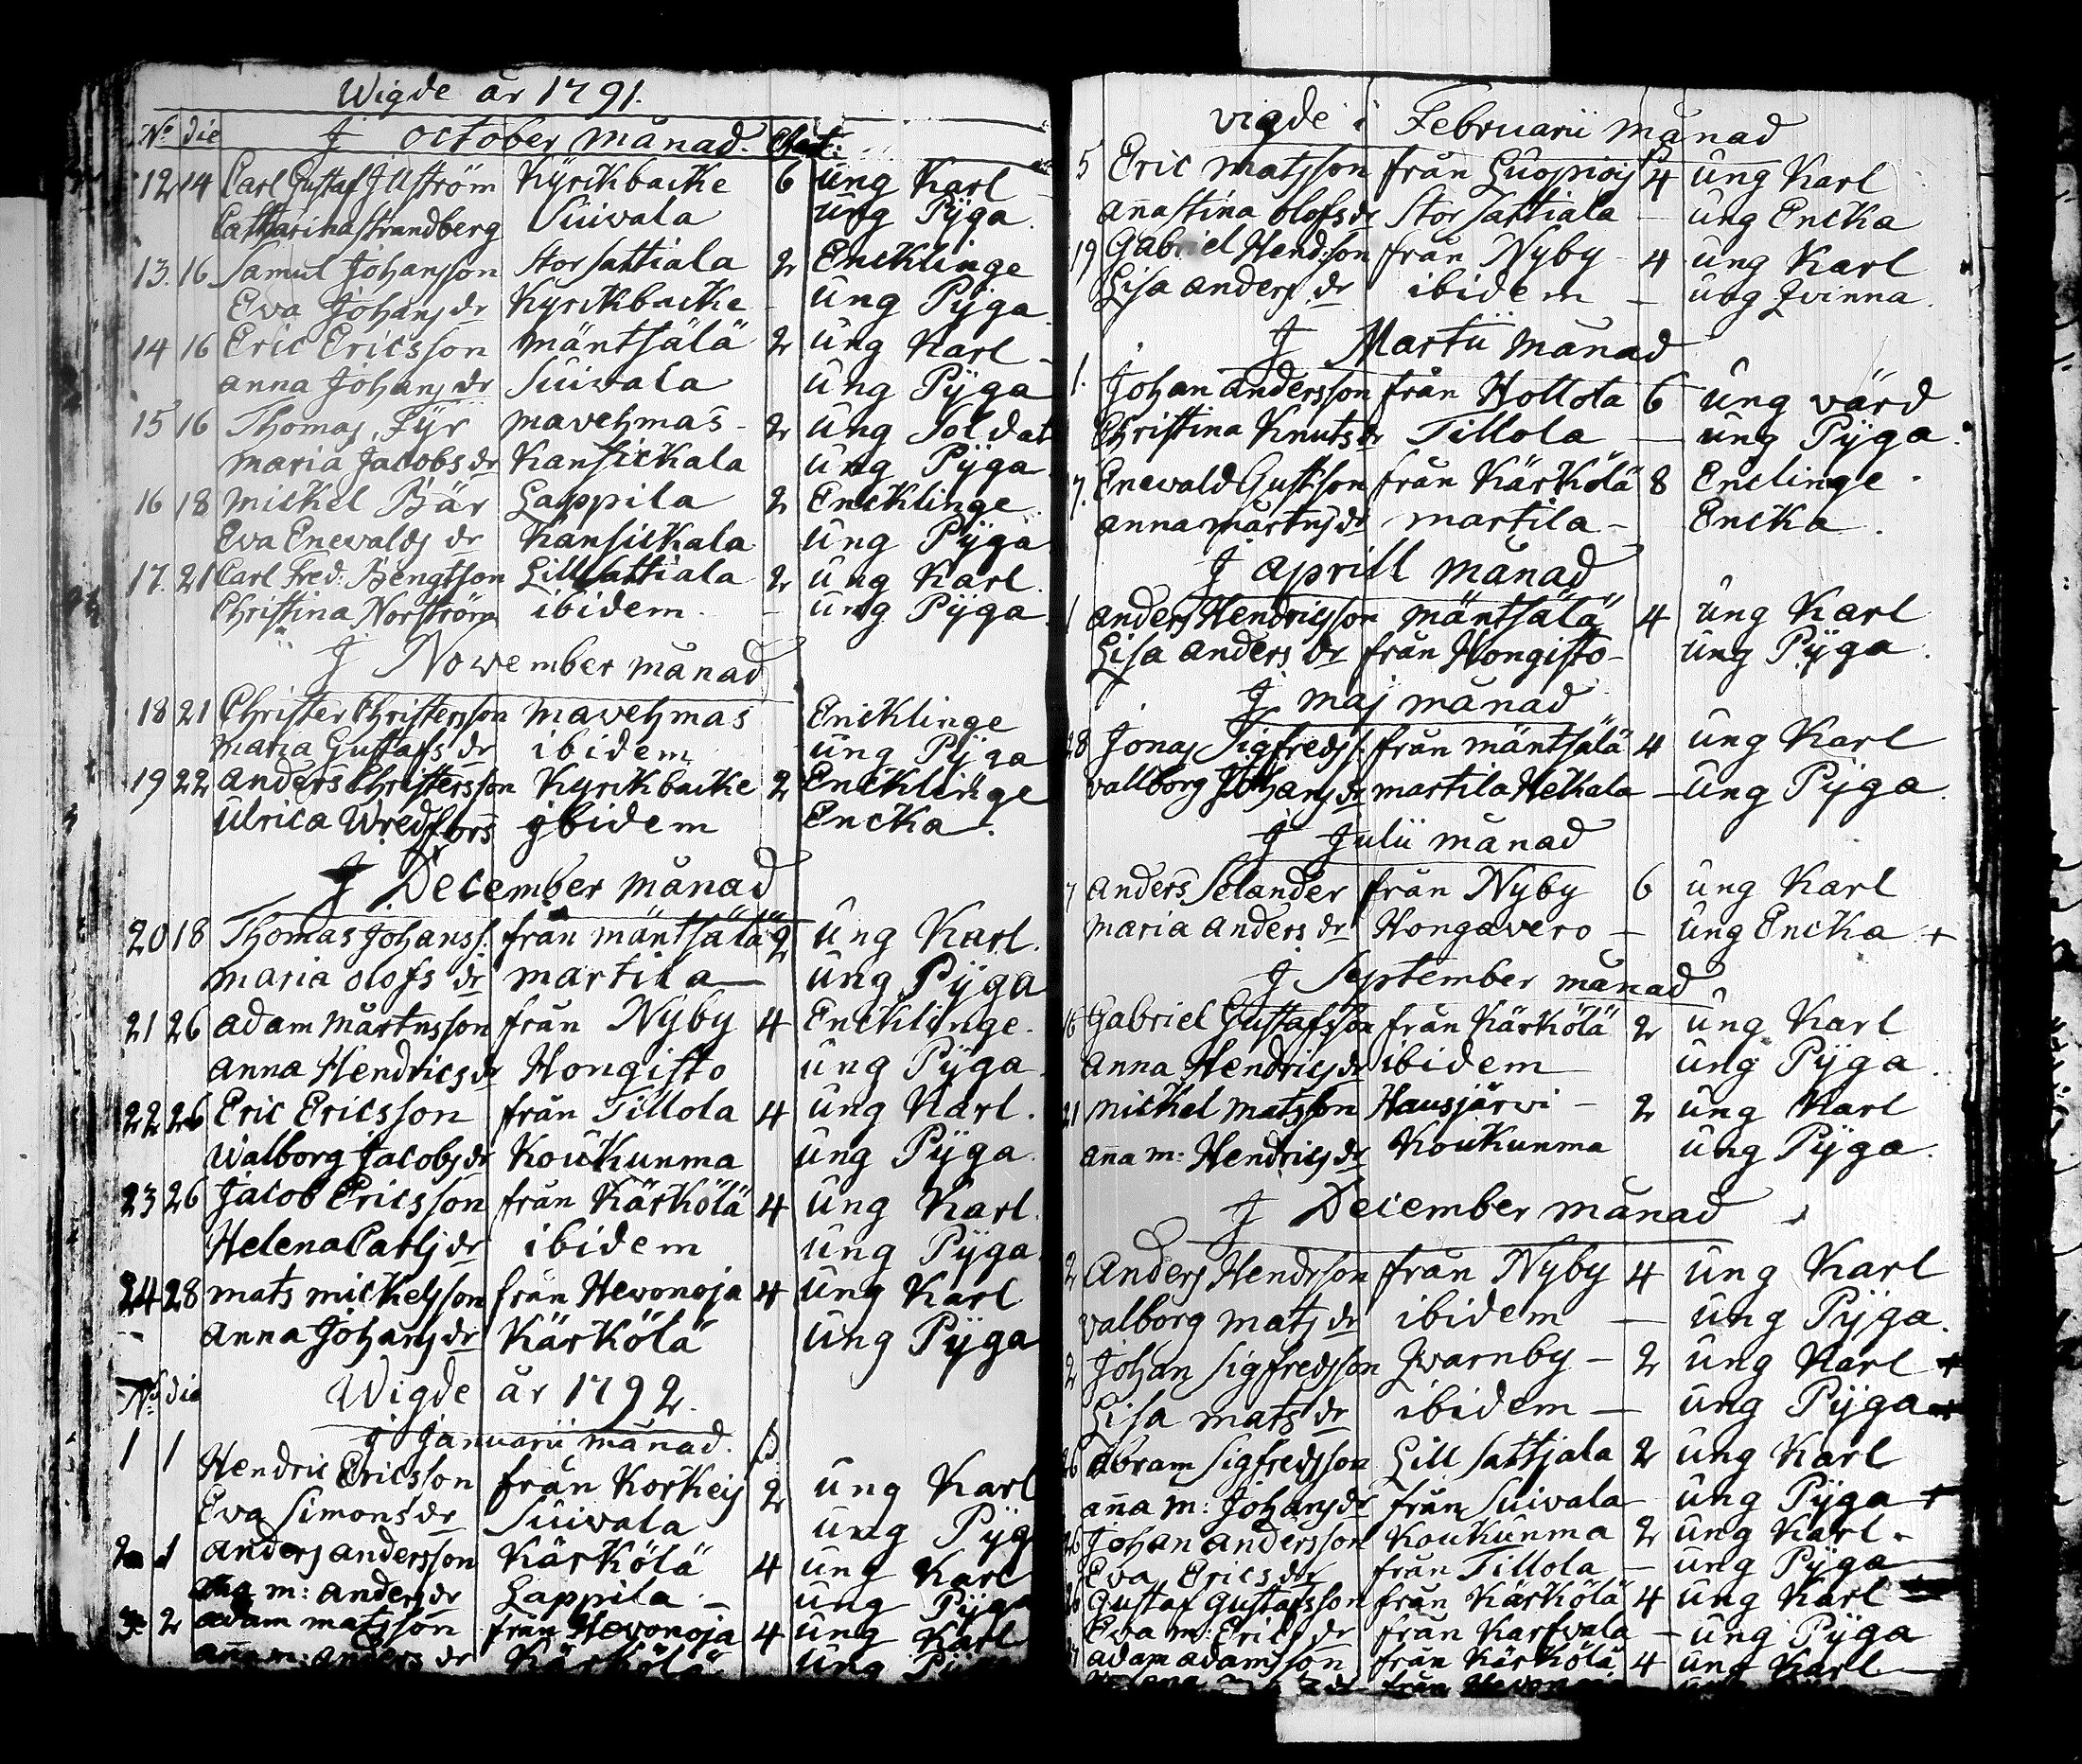 Wigde år 1791.
No die J october månad. Chart:
12 14 Carl Gustaf Jllström Kÿrckbacke 6 ung Karl
Catharina Strandberg Suivala ung Pÿga
13. 16 Samul Johansson Stor Sattiala 2 Encklinge
Eva Johans dr Kyrckbacke - ung Pÿga
14 16 Eric Ericsson mäntsälä 2 ung Karl
anna Johans dr Suivala ung Pÿga
15 16 Thomas Fÿr mavehmas - 2 ung Soldat
maria Jacobs dr Kansickala ung Pÿga
16 18 mickel Bär Lappila 2 Encklinge
Eva Enevalds dr Kansickala ung Pÿga
17. 21 Carl Fred: Bengtson Lill Sattiala 2 ung Karl
Christina Norström ibidem - ung Pÿga
J November månad
18 21 Christer Christersson mavehmas Encklinge
maria Gustafs dr ibidem ung Pÿga
19 22 anders Christersson Kyrckbacke 2 Encklinge
Ulrica Wredfors ibidem Encka.
J December månad
20 18 Thomas Johanss. från mäntsälä 2 ung Karl.
maria olofs dr martila — ung Pÿga
21 26 adam mårtnsson från Nyby 4 Encklinge.
anna Hendrics dr Hongisto ung Pÿga.
22 26 Eric Ericsson från Tillola 4 ung Karl.
Walborg Jacobs dr Koukunma ung Pÿga.
23 26 Jacob Ericsson från Kärkölä 4 ung Karl.
Helena Carls dr ibidem ung Pÿga
24 28 mats mickelsson från Hevonoja 4 ung Karl
anna Johans dr Kärkölä ung Pÿga
No die Wigde år 1792.
J Januarii månad.
1 1 Hendric Ericsson från Korkeis 2 ung Karl
Eva Simons dr Suivala ung Pÿg
2 1 anders andersson Kärkölä 4 ung Karl
m: anders dr Lappila - ung Pÿga
3 2 adam matsson från Hevonoja 4 ung Karl
ana m: anders dr Kärkölä ung
vigde i Februarii månad
5 Eric matsson från Luopiois 4 ung Karl
anastina olofs dr Stor Sattiala - ung Encka
19 Gabriel Hendson från Nyby - 4 ung Karl
Lisa anders dr ibidem - ung Qvinna.
J Martii månad
1. Johan andersson från Hollola 6 ung värd
Christina Knuts dr Tillola — ung Pÿga.
7. Enevald Gustsson från Kärkölä 8 Enclinge
anna mårtns dr martila - Encka.
J aprill månad
1 anders Hendricsson mäntsälä 4 ung Karl
Lisa anders dr från Hongisto - ung Pÿga.
J maj månad
28 Jonas Sigfredss. från mäntsälä 4 ung Karl
vallborg Johans dr martila Hekala - ung Pÿga.
J Julii månad
7 anders Solander från Nyby 6 ung Karl
maria anders dr Hongavero - ung Encka +
J September månad
16 Gabriel Gustafsson från Kärkölä 2 ung Karl
anna Hendrics dr ibidem ung Pÿga.
21 mickel matsson Hausjärvi - 2 ung Karl
ana m: Hendrics dr Koukunma ung Pÿga.
J December månad
2 Anders Hendrson från Nyby 4 ung Karl
valborg mats dr ibidem - ung Pÿga.
2 Johan Sigfredsson Qvarnby - 2 ung Karl +
Lisa mats dr ibidem - ung Pÿga
26 Abram Sigfredsson Lill Sattjala 2 ung Karl
ana m: Johans dr från Suivala - ung Pÿga +
26 Johan andersson Koukunma 2 ung Karl
Eva Erics dr från Tillola - ung Pÿga
26 Gustaf Gustafsson från Kärkölä 4 ung Karl
Eva m: Erics dr från Karfvala - ung Pÿga
adam adamsson från Kärkölä 4 ung Karl
från